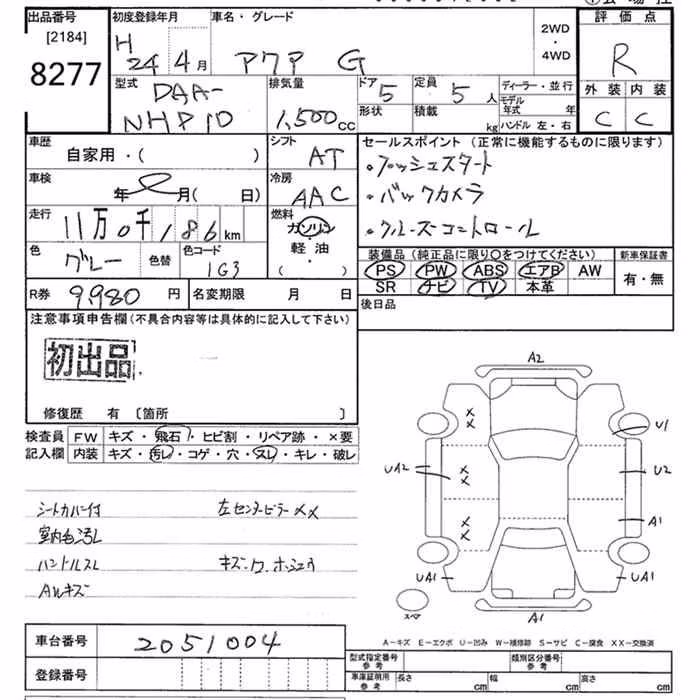 出品番号
[2184]
8277
初度登録年月
H 24 4 月
車名・グレード
アクア G
2WD
・
4WD
評価点
R
外装 内装
C C
型式
DAA-
NHP10
排気量
1,500cc
ドア 5
形状
定員 5 人
積載 kg
ディーラー・並行
モデル年式 年
ハンドル 左・右
車歴
自家用・( )
シフト
AT
車検
年 月( 日)
冷房
AAC
走行
11万0千186km
燃料
ガソリン
軽油
( ・ )
色
グレー
色替
色コード
1G3
セールスポイント (正常に機能するものに限ります)
・プッシュスタート
・バックカメラ
・クルーズコントロール
装備品(純正品に限り○をつけてください)
PS PW ABS エアB AW
SR ナビ TV 本革
新車保証書
有・無
R券 9,980 円
名変期限 月 日
後日品
注意事項申告欄(不具合内容等は具体的に記入して下さい)
初出品
修復歴 有 〔箇所 〕
検査員
記入欄
FW キズ・飛石・ヒビ割・リペア跡・×要
内装 キズ・汚レ・コゲ・穴・スレ・キレ・破レ
シートカバー付
左センターピラー××
室内色汚し
ハンドルスレ
AWキズ
A2
U1
UA2
U2
A1
UA1
UA1
スペア
A1
A−キズ E−エクボ U−凹み W−補修跡 S−サビ C−腐食 XX−交換済
車台番号
2051004
登録番号
型式指定番号
参考
類別区分番号
参考
車庫証明用
参考
長さ cm
幅 cm
高さ cm